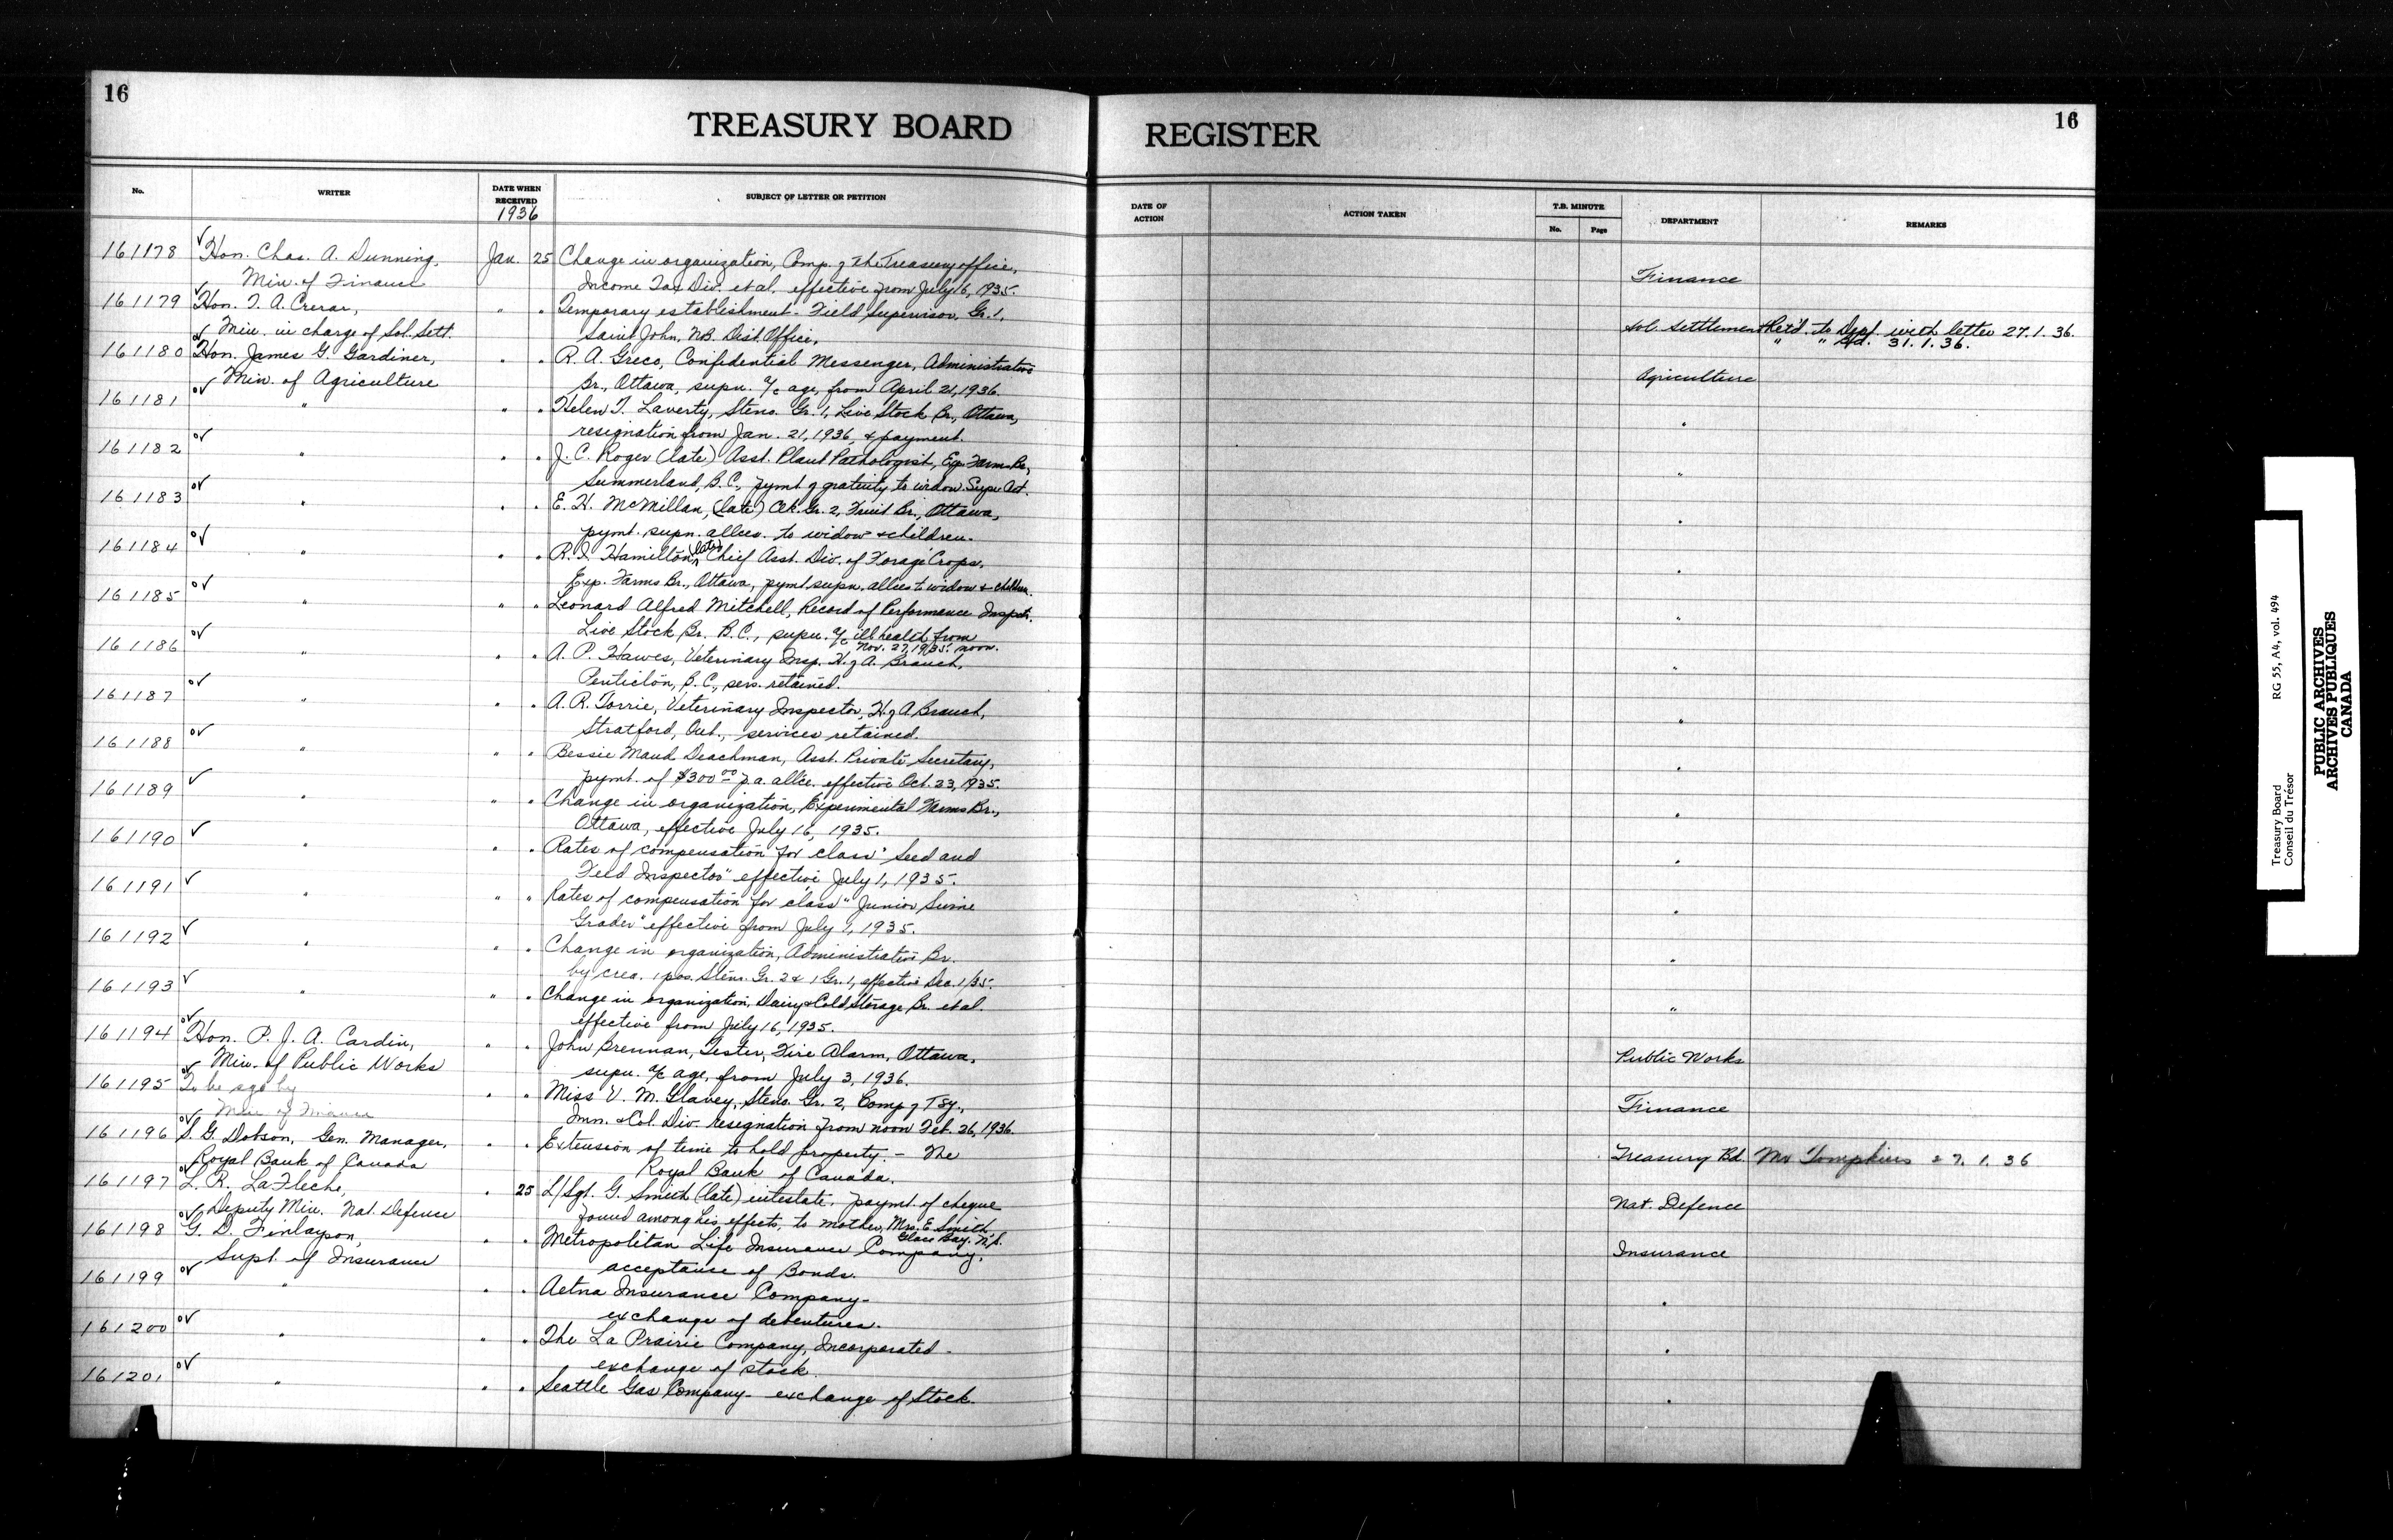 16
16
TREASURY BOARD REGISTER
No. WRITER DATE WHEN RECEIVED SUBJECT OF LETTER OR PETITION DATE OF ACTION ACTION TAKEN T.B. MINUTE No. Page DEPARTMENT REMARKS
1936
161178 Hon. Chas. A. Dunning, Jan. 25 Change in organization, Comp. of the Treasury office,
Min. of Finance Income Tax Div. et al. effective from July 16, 1935. Finance
161179 Hon. T. A. Crerar, " " Temporary establishment - Field Supervisor, Gr. 1,
Min. in charge of Sol. Sett. Saint John, N.B. Dist. Office. Sol. Settlement Ret'd. to Dept. with letter 27.1.36.
" " 31.1.36.
161180 Hon. James G. Gardiner, " " R. A. Greco, Confidential Messenger, Administrative
Min. of Agriculture Br., Ottawa, supn. a/c age, from April 21, 1936. Agriculture
161181 " " " Helen T. Laverty, Steno. Gr. 1, Live Stock Br., Ottawa,
resignation from Jan. 21, 1936, & payment. "
161182 " " " J. C. Roger (late) Asst. Plant Pathologist, Exp. Farms Br.,
Summerland, B.C., pymt. of gratuity to widow. Supn. Act. "
161183 " " " E. H. McMillan, (late) Clk. Gr. 2, Fruit Br., Ottawa,
pymt. supn. allces. to widow & children. "
161184 " " " R. I. Hamilton, (late) Chief Asst. Div. of Forage Crops,
Exp. Farms Br., Ottawa, pymt. supn. allces to widow & children. "
161185 " " " Leonard Alfred Mitchell, Record of Performance Inspctr.
Live Stock Br. B.C., supn. a/c ill health from
Nov. 27, 1935. noon. "
161186 " " " A. P. Hawes, Veterinary Insp. H. of A. Branch,
Penticton, B.C., serv. retained. "
161187 " " " A. R. Torrie, Veterinary Inspector, H. of A Branch,
Stratford, Ont., services retained. "
161188 " " " Bessie Maud Deachman, Asst. Private Secretary,
pymt. of $300.00 p.a. allce. effective Oct. 23, 1935. "
161189 " " " Change in organization, Experimental Farms Br.,
Ottawa, effective July 16, 1935. "
161190 " " " Rates of compensation for class "Seed and
Feed Inspector" effective July 1, 1935. "
161191 " " " Rates of compensation for class "Junior Swine
Grader" effective from July 1, 1935. "
161192 " " " Change in organization, Administrative Br.
by crea. 1 pos. Steno. Gr. 2 & 1 Gr. 1, effective Dec. 1/35. "
161193 " " " Change in organization, Dairy & Cold Storage Br. et al.
effective from July 16, 1935. "
161194 Hon. P. J. A. Cardin, " " John Brennan, Tester, Fire Alarm, Ottawa,
Min. of Public Works supn. a/c age, from July 3, 1936. Public Works
161195 To be sgd by " " Miss V. M. Slavey, Steno. Gr. 2, Comp of Tsy.,
Min of Finance Imn. & Col. Div. resignation from noon Feb. 26, 1936. Finance
161196 S. G. Dobson, Gen. Manager, " " Extension of time to hold property. - The
Royal Bank of Canada Royal Bank of Canada. Treasury Bd. Mr Tompkins 27.1.36
161197 L. R. LaFleche, " 25 L/Sgt. G. Smith (late) intestate. paymt. of cheque
Deputy Min. Nat. Defence found among his effects, to mother, Mrs. E. Smith, Nat. Defence
Glace Bay. N.S.
161198 G. D. Finlayson, " " Metropolitan Life Insurance Company,
Supt. of Insurance acceptance of Bonds. Insurance
161199 " " " Aetna Insurance Company -
exchange of debentures. "
161200 " " " The La Prairie Company, Incorporated -
exchange of stock. "
161201 " " " Seattle Gas Company - exchange of Stock. "
Treasury Board RG 55, A4, vol. 494
Conseil du Trésor
PUBLIC ARCHIVES
ARCHIVES PUBLIQUES
CANADA